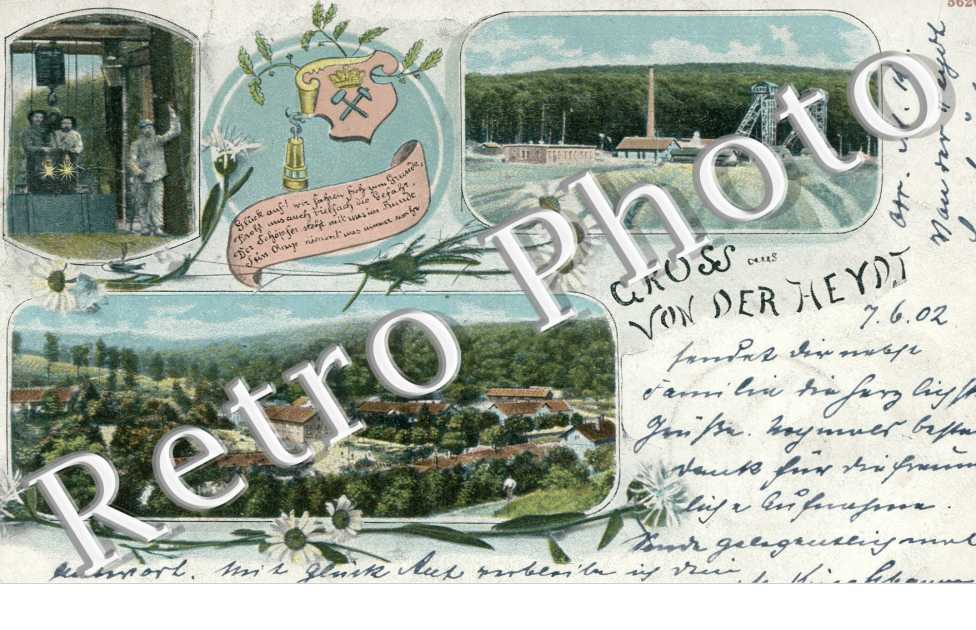 5620
Glück auf! wir fahren froh zum Grunde,
Droht uns auch vielfach die Gefahr,
Der Schöpfer steht mit uns im Bunde
Sein Auge nimmt uns immer wahr
GRUSS aus
VON DER HEYDT
7.6.02
sendet dir nebst
Familie die herzlichst
Grüße. Nochmals besten
Dank für die freund
liche Aufnahme.
Sende gelegentlich mal
Antwort. Mit Glück Auf verbleibe ich dein
von der Heydt
Retro Photo